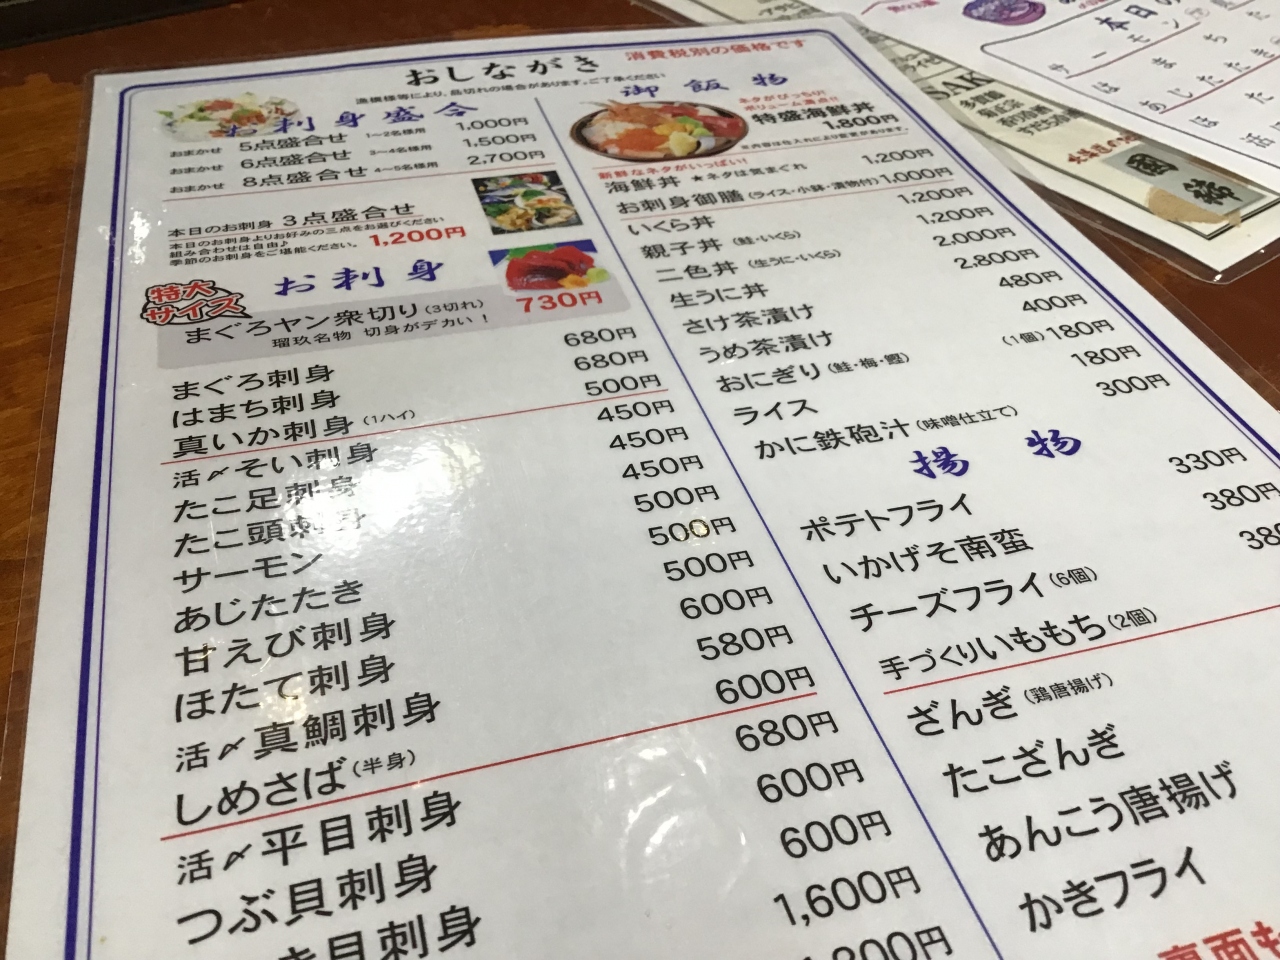 おしながき
消費税別の価格です
漁模様等により、品切れの場合があります。ご了承ください
お刺身盛合
おまかせ 5点盛合せ 1〜2名様用 1,000円
おまかせ 6点盛合せ 3〜4名様用 1,500円
おまかせ 8点盛合せ 4〜5名様用 2,700円
本日のお刺身 3点盛合せ
本日のお刺身よりお好みの三点をお選びください
組み合わせは自由♪
季節のお刺身をご堪能ください。 1,200円
お刺身
特大
サイズ
まぐろヤン衆切り(3切れ) 730円
瑠玖名物 切身がデカい!
まぐろ刺身 680円
はまち刺身 680円
真いか刺身(1ハイ) 500円
活〆そい刺身 450円
たこ足刺身 450円
たこ頭刺身 450円
サーモン 500円
あじたたき 500円
甘えび刺身 500円
ほたて刺身 600円
活〆真鯛刺身 580円
しめさば(半身) 600円
活〆平目刺身 680円
つぶ貝刺身 600円
貝刺身 600円
1,600円
御飯物
ネタがびっちり!
ボリューム満点!!
特盛海鮮丼
1,800円
※内容は仕入れにより変更があります。
新鮮なネタがいっぱい!
海鮮丼 ★ネタは気まぐれ 1,200円
お刺身御膳(ライス・小鉢・漬物付) 1,000円
いくら丼 1,200円
親子丼(鮭・いくら) 1,200円
二色丼(生うに・いくら) 2,000円
生うに丼 2,800円
さけ茶漬け 480円
うめ茶漬け 400円
おにぎり(鮭・梅・鰹) (1個)180円
ライス 180円
かに鉄砲汁(味噌仕立て) 300円
揚物
ポテトフライ 330円
いかげそ南蛮 380円
チーズフライ(6個) 38
手づくりいももち(2個)
ざんぎ(鶏唐揚げ)
たこざんぎ
あんこう唐揚げ
かきフライ
裏面も
本日の
サーモン
SAK
國稀